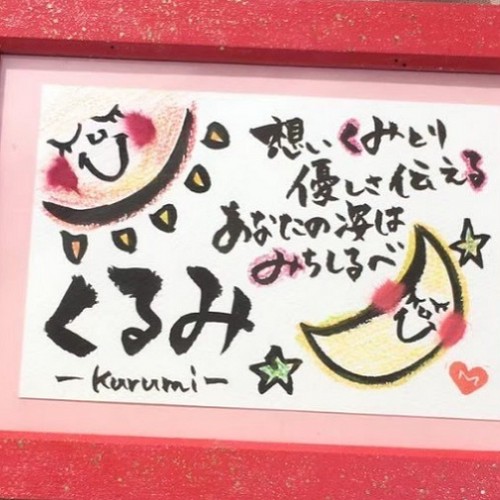 想いくみとり
優しさ伝える
あなたの姿は
みちしるべ
くるみ
-Kurumi-
M